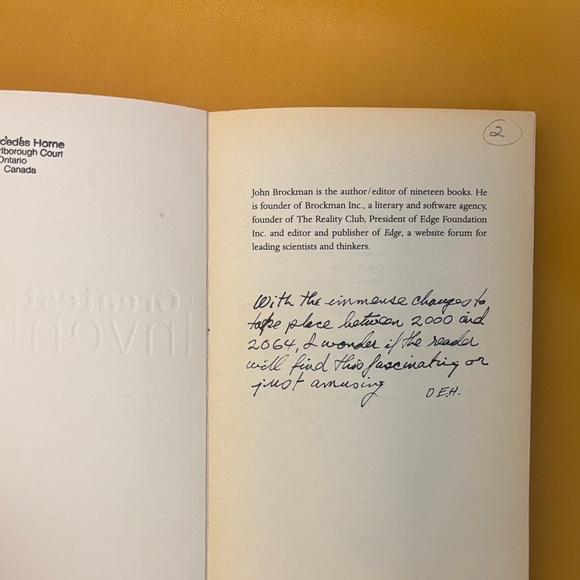 cedés Horne
rlborough Court
Ontario
Canada
Greatest
Inven
2
John Brockman is the author/editor of nineteen books. He
is founder of Brockman Inc., a literary and software agency,
founder of The Reality Club, President of Edge Foundation
Inc. and editor and publisher of Edge, a website forum for
leading scientists and thinkers.
With the immense changes to
take place between 2000 and
2064, I wonder if the reader
will find this fascinating or
just amusing
D.E.H.